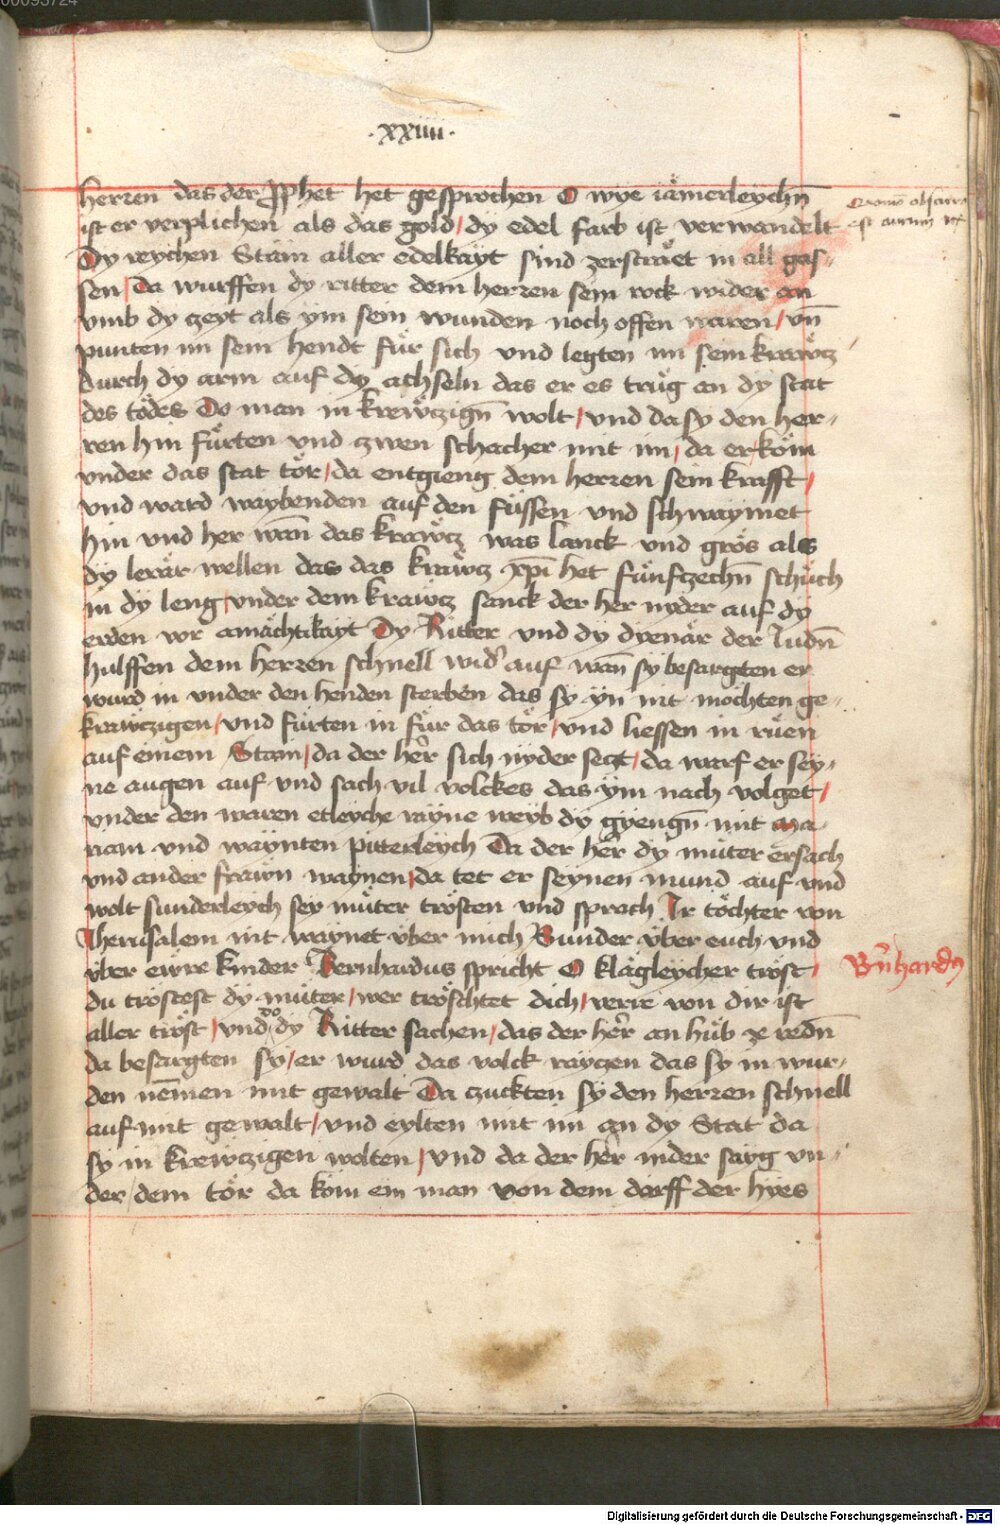 00093724
·xxiiii·
herren das der ꝓphet het gesprochen O wye iämerleychn̄
ist er verplichen als das gold / dy edel farb ist verwandelt
Dy reychen Stäm aller edelkayt sind zersträet in all gas-
sen / Da wurffen dy ritter dem herren sein rock wider an
vmb dy czeyt als ym sein wunden noch offen waren / vn̄
punten im sein hendt für sich vnd legten im sein kräwcz
durch dy arm auf dy achseln das er es trüg an dy stat
des tödes Do man in krewczign̄ wolt / vnd da sy den her-
ren hin fürten vnd zwen schacher mit im / da er köm
vnder das stat tör / da entgieng dem herren sein krafft /
vnd ward waybenden auf den füssen vnd schwaymet
hin vnd her wan̄ das kräwcz was lanck vnd grös als
dy lerär wellen das das kräwcz xp̄i het fünfczechn̄ schüch
in dy leng / vnder dem kräwcz sanck der her nyder auf dy
erden vor amächtikayt Dy Ritter vnd dy dyenär der Judn̄
hulffen dem herren schnell wid' auf wan̄ sy besargten er
wurd in vnder den henden sterben das sy yn nit möchten ge-
kräwczigen / vnd fürten in für das tör / vnd liessen in rüen
auf einem Stain / da der her̄ sich nyder seczt / da warf er sey-
ne augen auf vnd sach vil volckes das ym nach volget /
vnder den waren etleyche rayne weyb dy gyengn̄ mit ma-
riam vnd waynten pitterleych Da der her̄ dy müter ersach
vnd ander frawn waynen / da tet er seynen mund auf vnd
wolt sunderleych sey müter trösten vnd sprach Ir töchter von
Jherusalem nit waynet über mich Sunder über euch vnd
über ewre kinder Bernhardus spricht O klägleycher tröst /
du tröstest dy müter / wer tröschtet dich / verre von dir ist
aller tröst / vnd do dy Ritter sachen / das der her̄ an hüb ze redn̄
da besargten sy / er wurd das volck rayczen das sy in wur-
den nēmen mit gewalt Da zuckten sy den herren schnell
auf mit gewalt / vnd eylten mit im an dy Stat da
sy in krewczigen wolten / vnd da der her̄ nider sayg vn-
der dem tör da köm ein man von dem dorff der hyes
est aurum
Bn̄hardꝰ
Digitalisierung gefördert durch die Deutsche Forschungsgemeinschaft - DFG